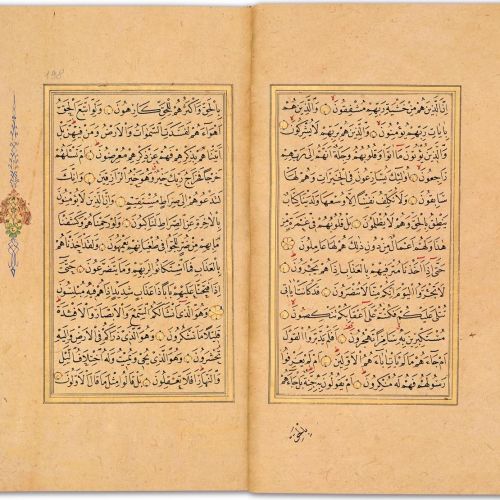 إن الذين هم من خشية ربهم مشفقون والذين هم
بآيات ربهم يؤمنون والذين هم بربهم لا يشركون
والذين يؤتون ما آتوا وقلوبهم وجلة أنهم إلى ربهم
راجعون أولئك يسارعون في الخيرات وهم لها
سابقون ولا نكلف نفسا إلا وسعها ولدينا كتاب
ينطق بالحق وهم لا يظلمون بل قلوبهم في غمرة من
هذا ولهم أعمال من دون ذلك هم لها عاملون
حتى إذا أخذنا مترفيهم بالعذاب إذا هم يجأرون
لا تجأروا اليوم إنكم منا لا تنصرون قد كانت آياتي
تتلى عليكم فكنتم على أعقابكم تنكصون
مستكبرين به سامرا تهجرون أفلم يدبروا القول
أم جاءهم ما لم يأت آباءهم الأولين أم لم يعرفوا
رسولهم فهم له منكرون أم يقولون به جنة بل جاءهم
بالحق
١٩٨
بالحق وأكثرهم للحق كارهون ولو اتبع الحق
أهواءهم لفسدت السموات والأرض ومن فيهن بل
أتيناهم بذكرهم فهم عن ذكرهم معرضون أم تسألهم
خرجا فخراج ربك خير وهو خير الرازقين وإنك
لتدعوهم إلى صراط مستقيم وإن الذين لا يؤمنون
بالآخرة عن الصراط لناكبون ولو رحمناهم وكشفنا
ما بهم من ضر للجوا في طغيانهم يعمهون ولقد أخذناهم
بالعذاب فما استكانوا لربهم وما يتضرعون حتى
إذا فتحنا عليهم بابا ذا عذاب شديد إذا هم فيه مبلسون
وهو الذي أنشأ لكم السمع والأبصار والأفئدة
قليلا ما تشكرون وهو الذي ذرأكم في الأرض وإليه
تحشرون وهو الذي يحيي ويميت وله اختلاف الليل
والنهار أفلا تعقلون بل قالوا مثل ما قال الأولون